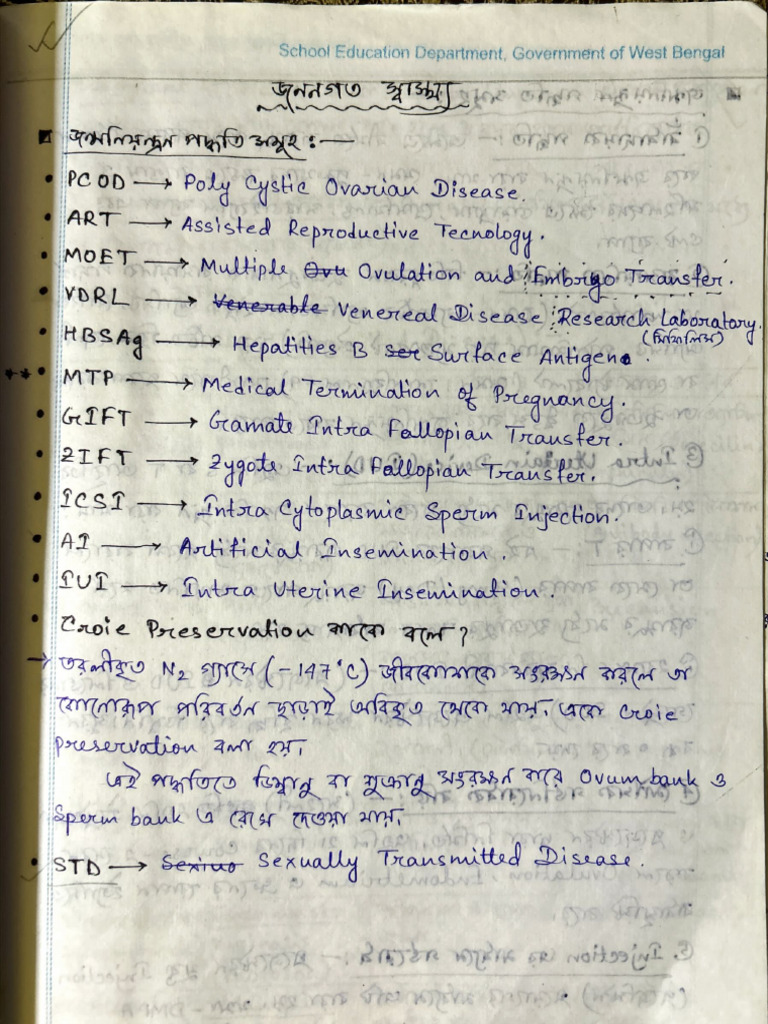 School Education Department, Government of West Bengal
জননগত স্বাস্থ্য
জন্মনিয়ন্ত্রন পদ্ধতি সমূহ :—
• PCOD → Poly Cystic Ovarian Disease.
• ART → Assisted Reproductive Tecnology.
• MOET → Multiple Ovu Ovulation and Embryo Transfer.
• VDRL → Venerable Venereal Disease Research Laboratary.
(সিফিলিস)
• HBSAg → Hepatities B ser Surface Antigen.
** • MTP → Medical Termination of Pregnancy.
• GIFT → Gramate Intra Fallopian Transfer.
• ZIFT → Zygote Intra Fallopian Transfer.
• ICSI → Intra Cytoplasmic Sperm Injection.
• AI → Artificial Insemination.
• IUI → Intra Uterine Insemination.
• Croie Preservation কাকে বলে?
→ তরলীকৃত N₂ গ্যাসে (-147°C) জীবকোষকে সংরক্ষন করলে তা
কোনোরূপ পরিবর্তন ছাড়াই অবিকৃত থেকে যায়, একে Croie
Preservation বলা হয়,
এই পদ্ধতিতে ডিম্বানু বা শুক্রানু সংরক্ষন করে Ovum bank ও
Sperm bank এ রেখে দেওয়া যায়,
• STD → Sexually Transmitted Disease.